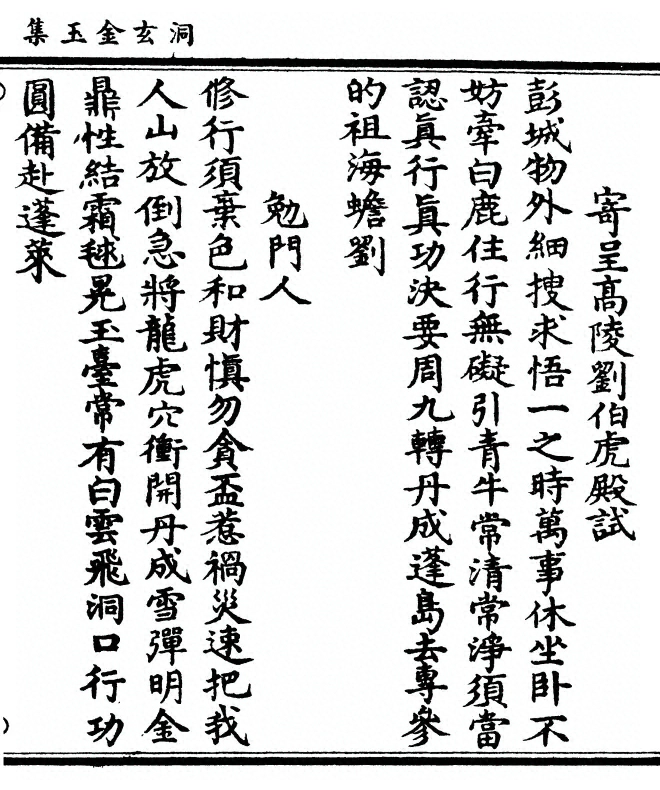 洞玄金玉集
寄呈高陵劉伯虎殿試
彭城物外細搜求悟一之時萬事休坐卧不
妨牽白鹿住行無礙引青牛常清常淨須當
認眞行眞功決要周九轉丹成蓬島去專參
的祖海蟾劉
勉門人
修行須棄色和財慎勿貪盃惹禍災速把我
人山放倒急將龍虎穴衝開丹成雪彈明金
鼎性結霜毬晃玉臺常有白雲飛洞口行功
圓備赴蓬萊